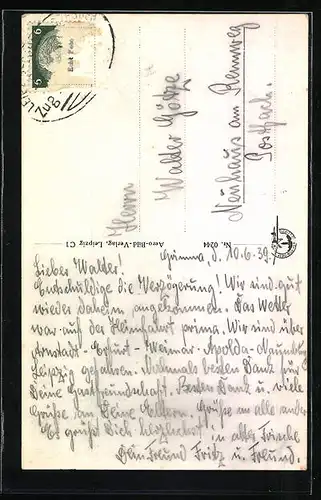 Herrn
Walter Götze
Neuhaus am Rennweg
Postfach.
Nr. 0244
Aero-Bild-Verlag, Leipzig C1
Grimma, d. 10.6.39.
Lieber Walter!
Entschuldige die Verzögerung! Wir sind gut
wieder daheim angekommen. Das Wetter
war auf der Heimfahrt prima. Wir sind über
Arnstadt - Erfurt - Weimar - Apolda - Naumburg
Leipzig gefahren. Nochmals besten Dank für
Deine Gastfreundschaft. Besten Dank u. viele
Grüße an Deine Eltern. Grüße an alle andern
Es grüßt Dich herzlichst
in alter Frische
Dein Freund Fritz u. Freund.
6
6